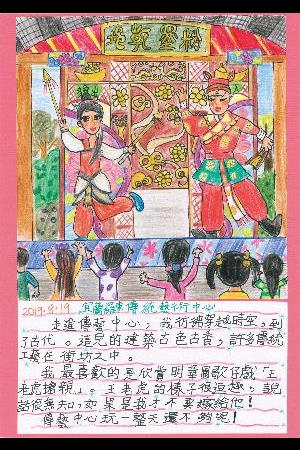 2019.8.19 宜蘭縣傳統藝術中心
走進傳藝中心，我彷彿穿越時空，到
了古代。這兒的建築古色古香，許多傳統
工藝在街坊之中。
我最喜歡的是欣賞明華園歌仔戲「王
老虎搶親」。王老虎的樣子很逗趣，說
話很無知，如果是我才不要嫁給他！
傳藝中心玩一整天還不夠呢！